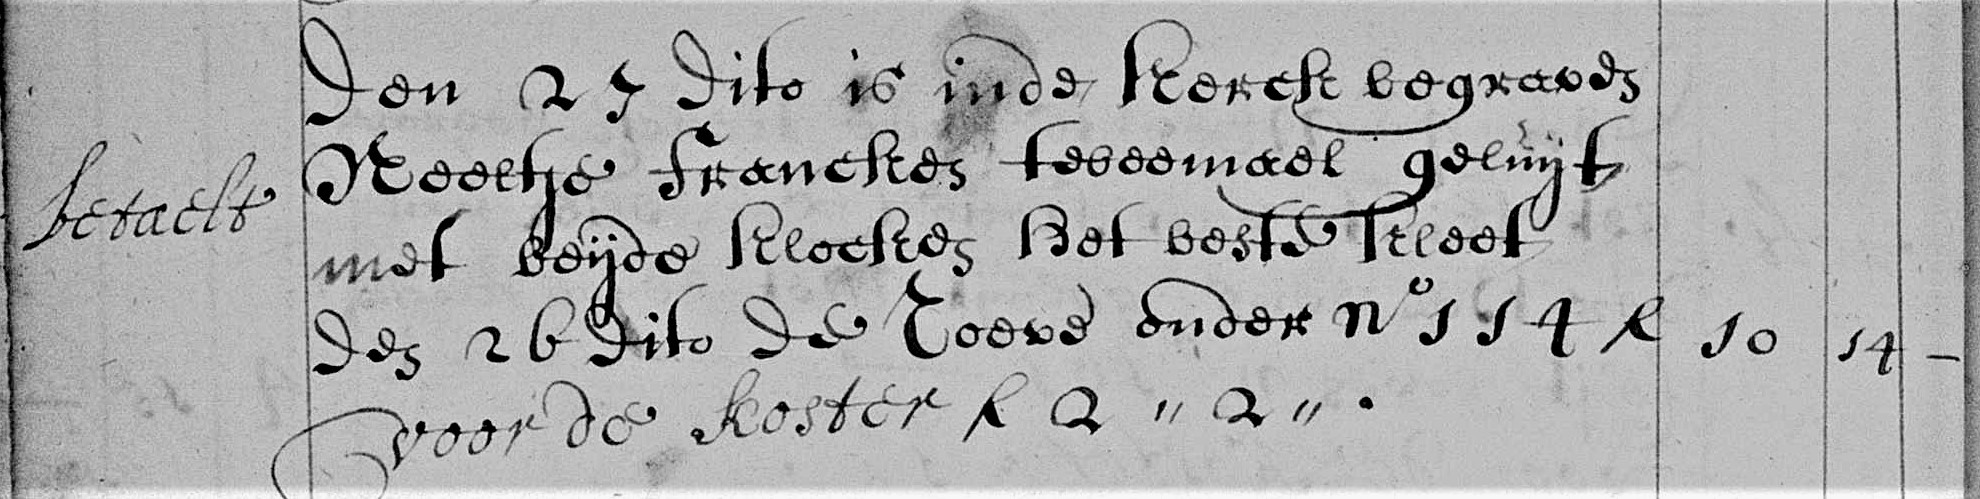 Den 27 dito is inde Kerck begraven
betaelt
Neeltje Franckes tweemael geluijt
met beijde klocken het beste kleet
den 26 dito de Roeve onder No 114 f 10 14 –
voor de koster f 2 " 2 " .